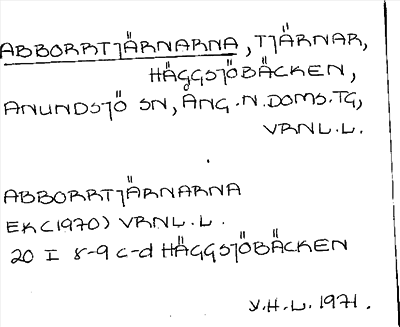 ABBORRTJÄRNARNA, TJÄRNAR,
HÄGGSJÖBÄCKEN,
ANUNDSJÖ SN, ÅNG.N.DOMS.TG,
VRNL.L.
ABBORRTJÄRNARNA
EK (1970) VRNL.L.
20 I 8-9 c-d HÄGGSJÖBÄCKEN
Y.H.L. 1971.